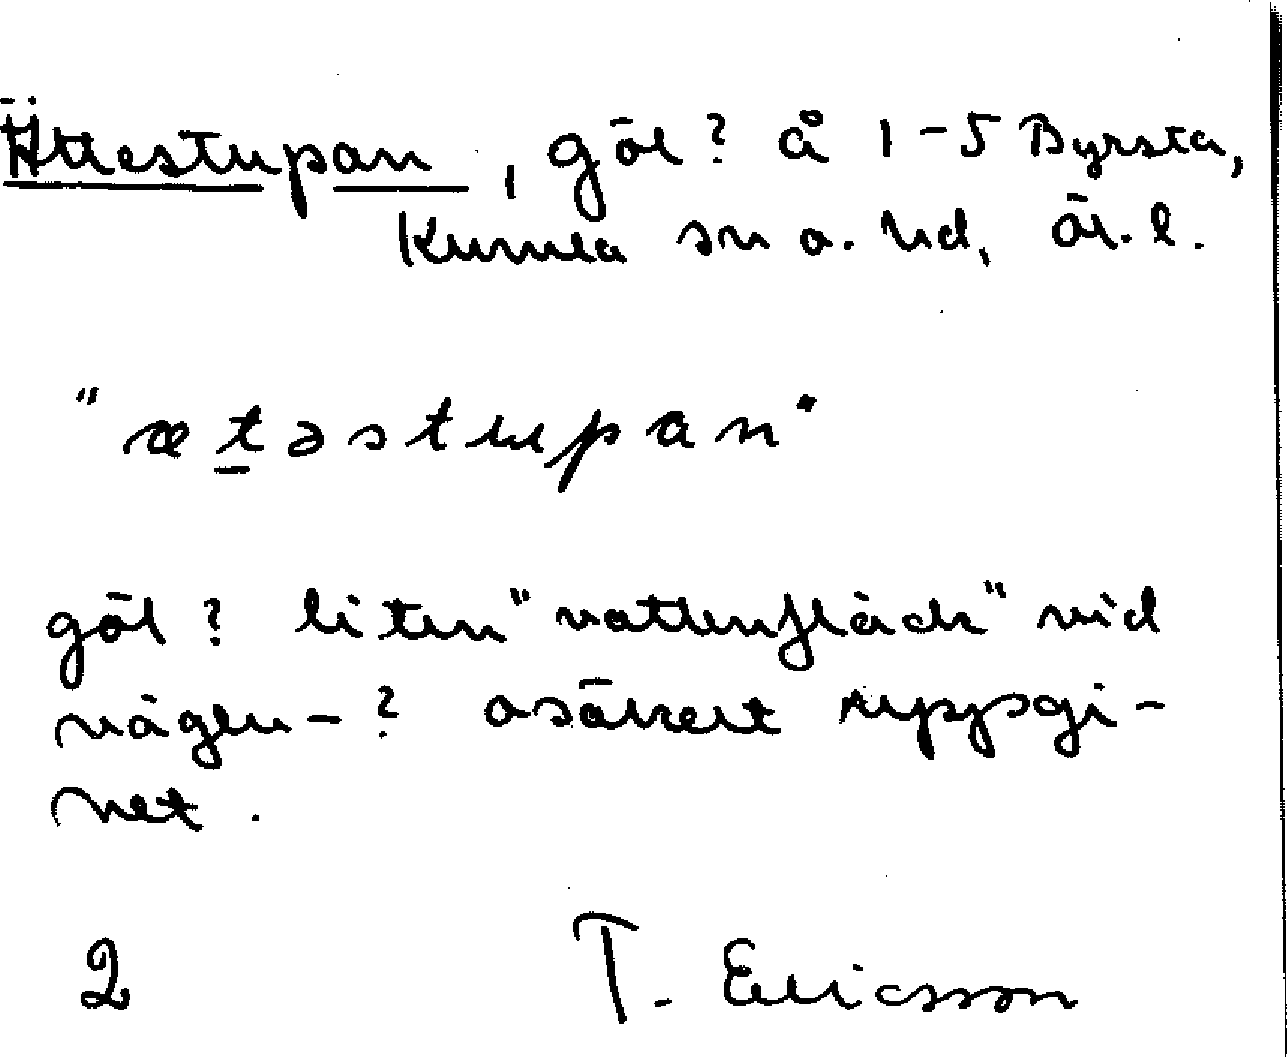 Ättestupan, göl? å 1-5 Byrsta,
Kumla sn o. hd, Ör. l.
"ætəstupan"
göl? liten "vattenfläck" vid
vägen-? osäkert uppgi-
vet.
2 T. Ericsson